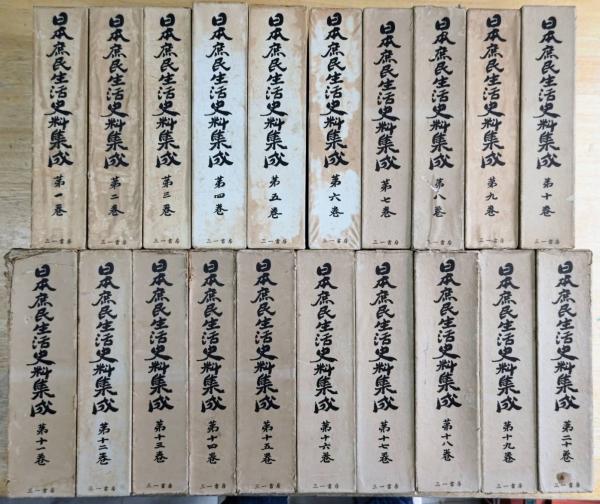 日本庶民生活史料集成 第一巻 三一書房
日本庶民生活史料集成 第二巻 三一書房
日本庶民生活史料集成 第三巻 三一書房
日本庶民生活史料集成 第四巻 三一書房
日本庶民生活史料集成 第五巻 三一書房
日本庶民生活史料集成 第六巻 三一書房
日本庶民生活史料集成 第七巻 三一書房
日本庶民生活史料集成 第八巻 三一書房
日本庶民生活史料集成 第九巻 三一書房
日本庶民生活史料集成 第十巻 三一書房
日本庶民生活史料集成 第十一巻 三一書房
日本庶民生活史料集成 第十二巻 三一書房
日本庶民生活史料集成 第十三巻 三一書房
日本庶民生活史料集成 第十四巻 三一書房
日本庶民生活史料集成 第十五巻 三一書房
日本庶民生活史料集成 第十六巻 三一書房
日本庶民生活史料集成 第十七巻 三一書房
日本庶民生活史料集成 第十八巻 三一書房
日本庶民生活史料集成 第十九巻 三一書房
日本庶民生活史料集成 第二十巻 三一書房